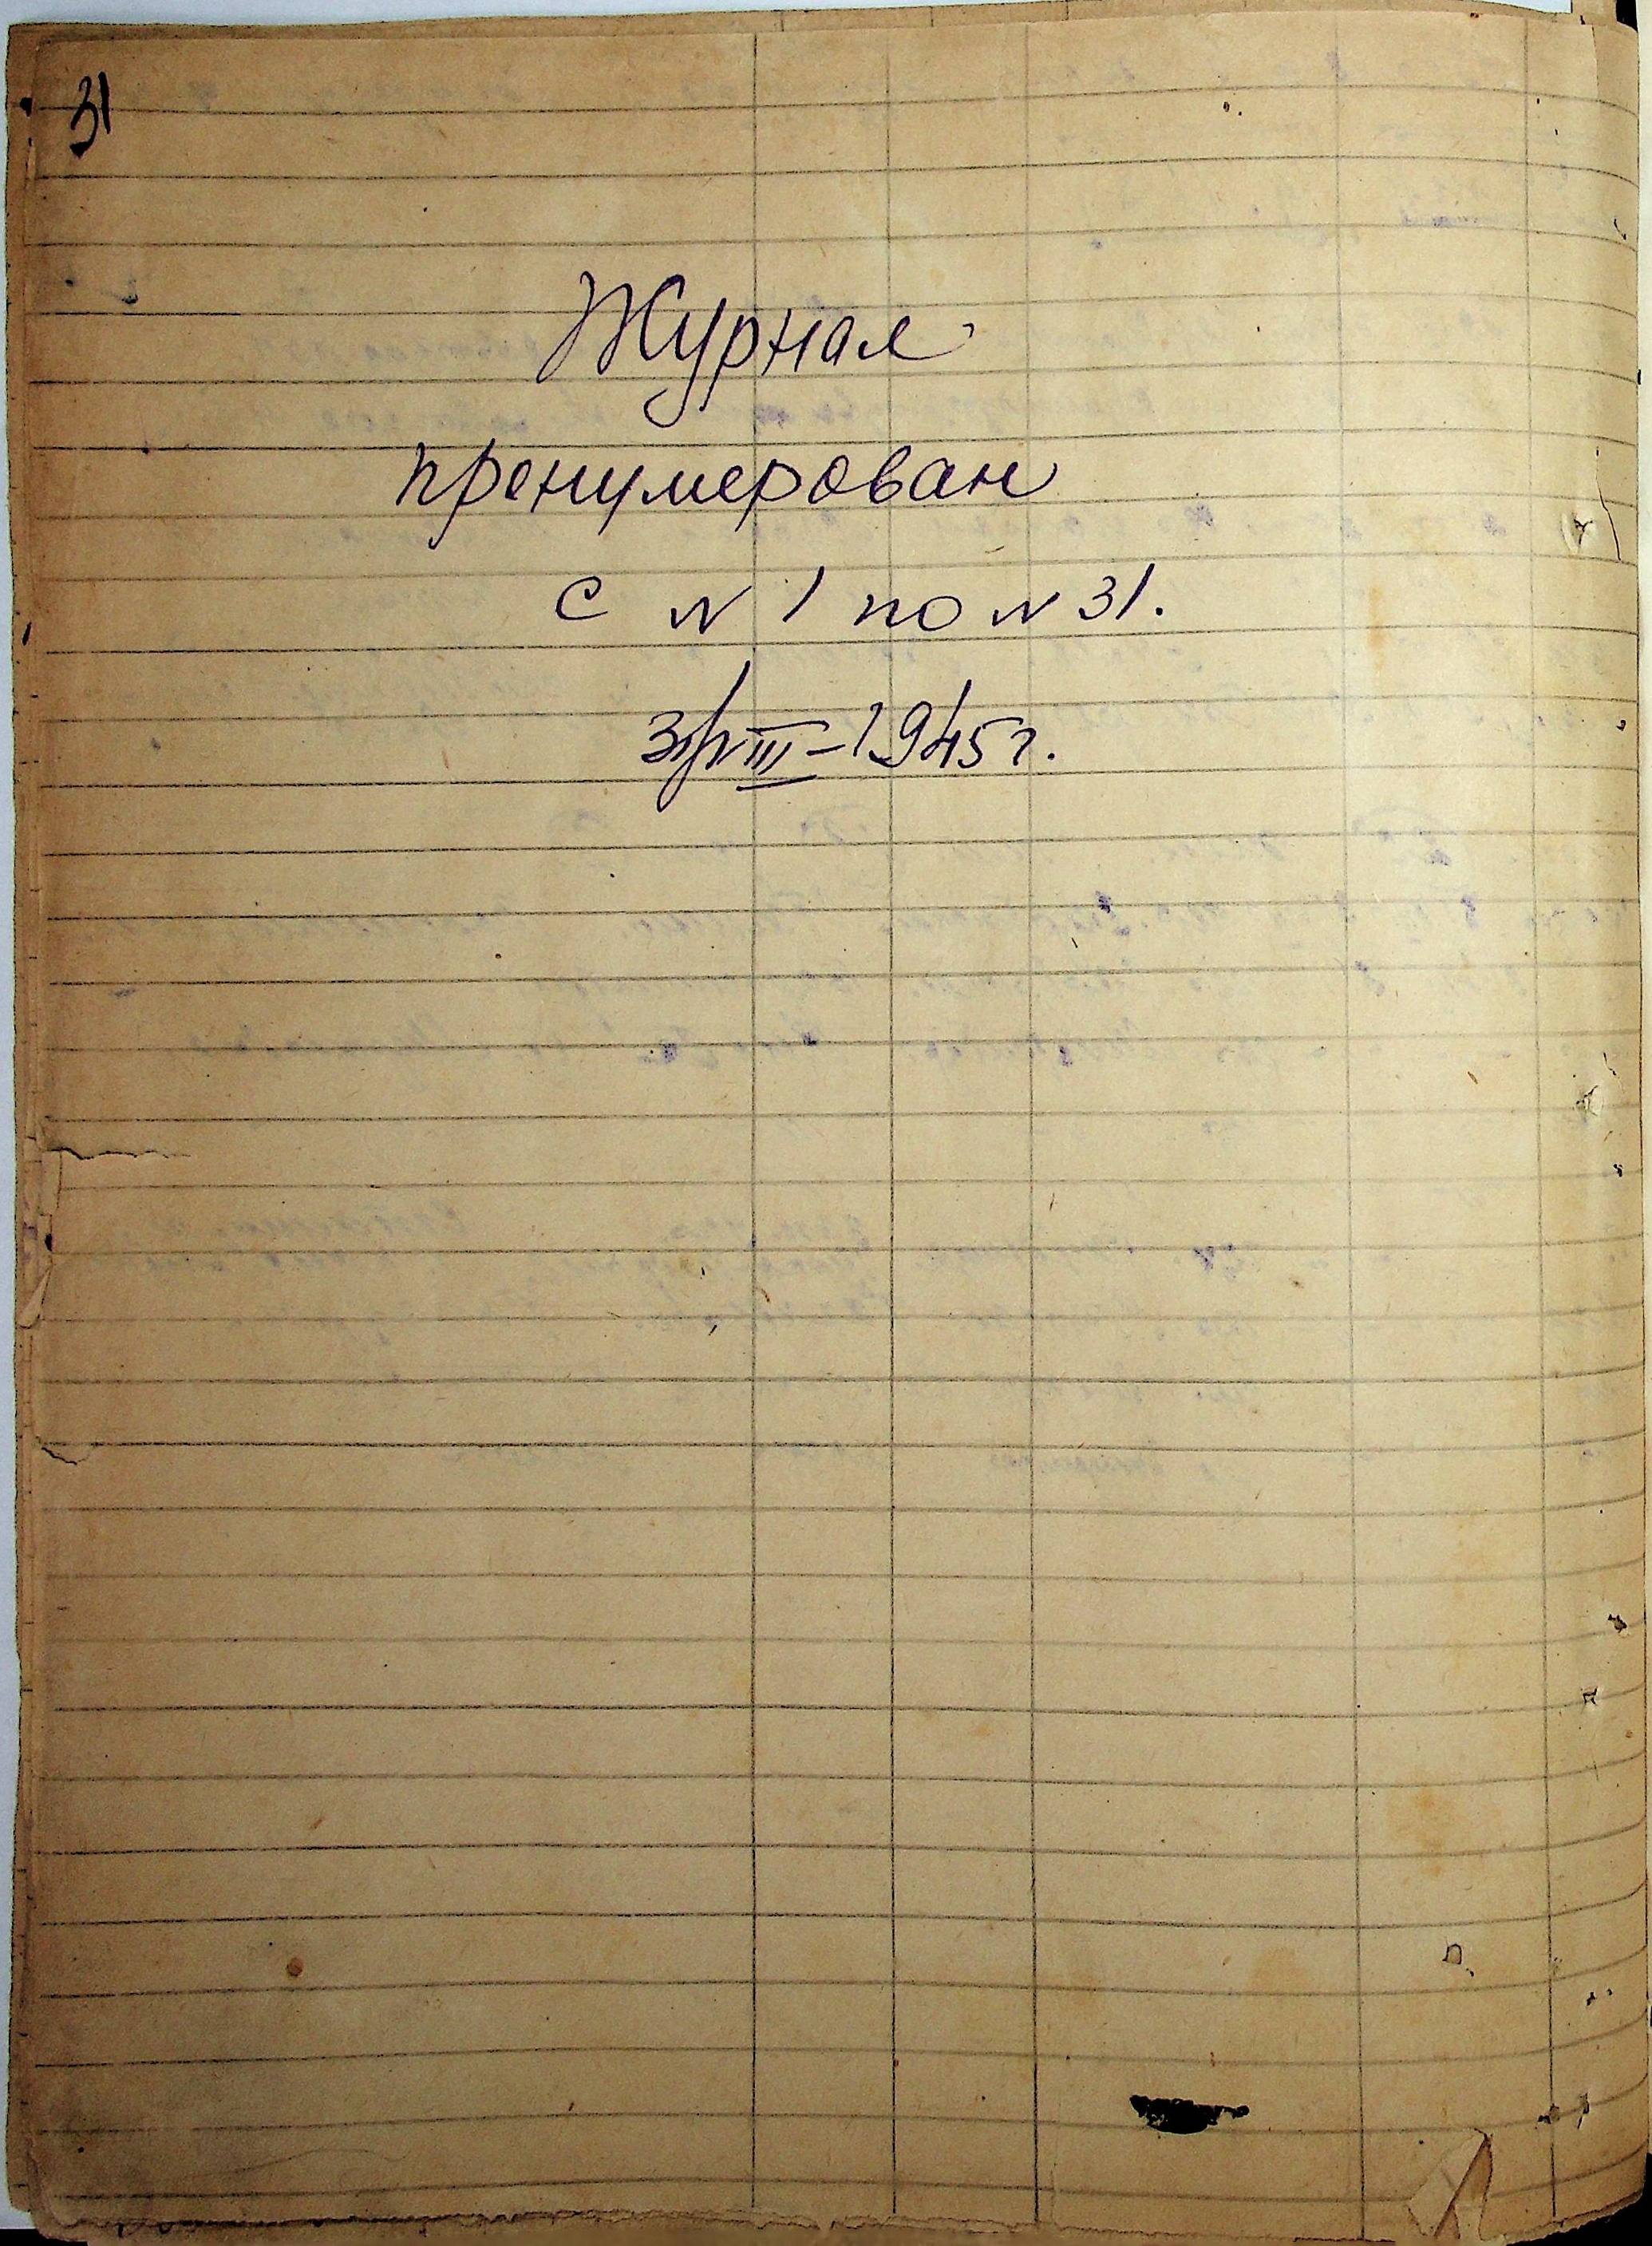 31
Журнал
пренумерован
с N 1 по N 31.
31/VIII-1945г.